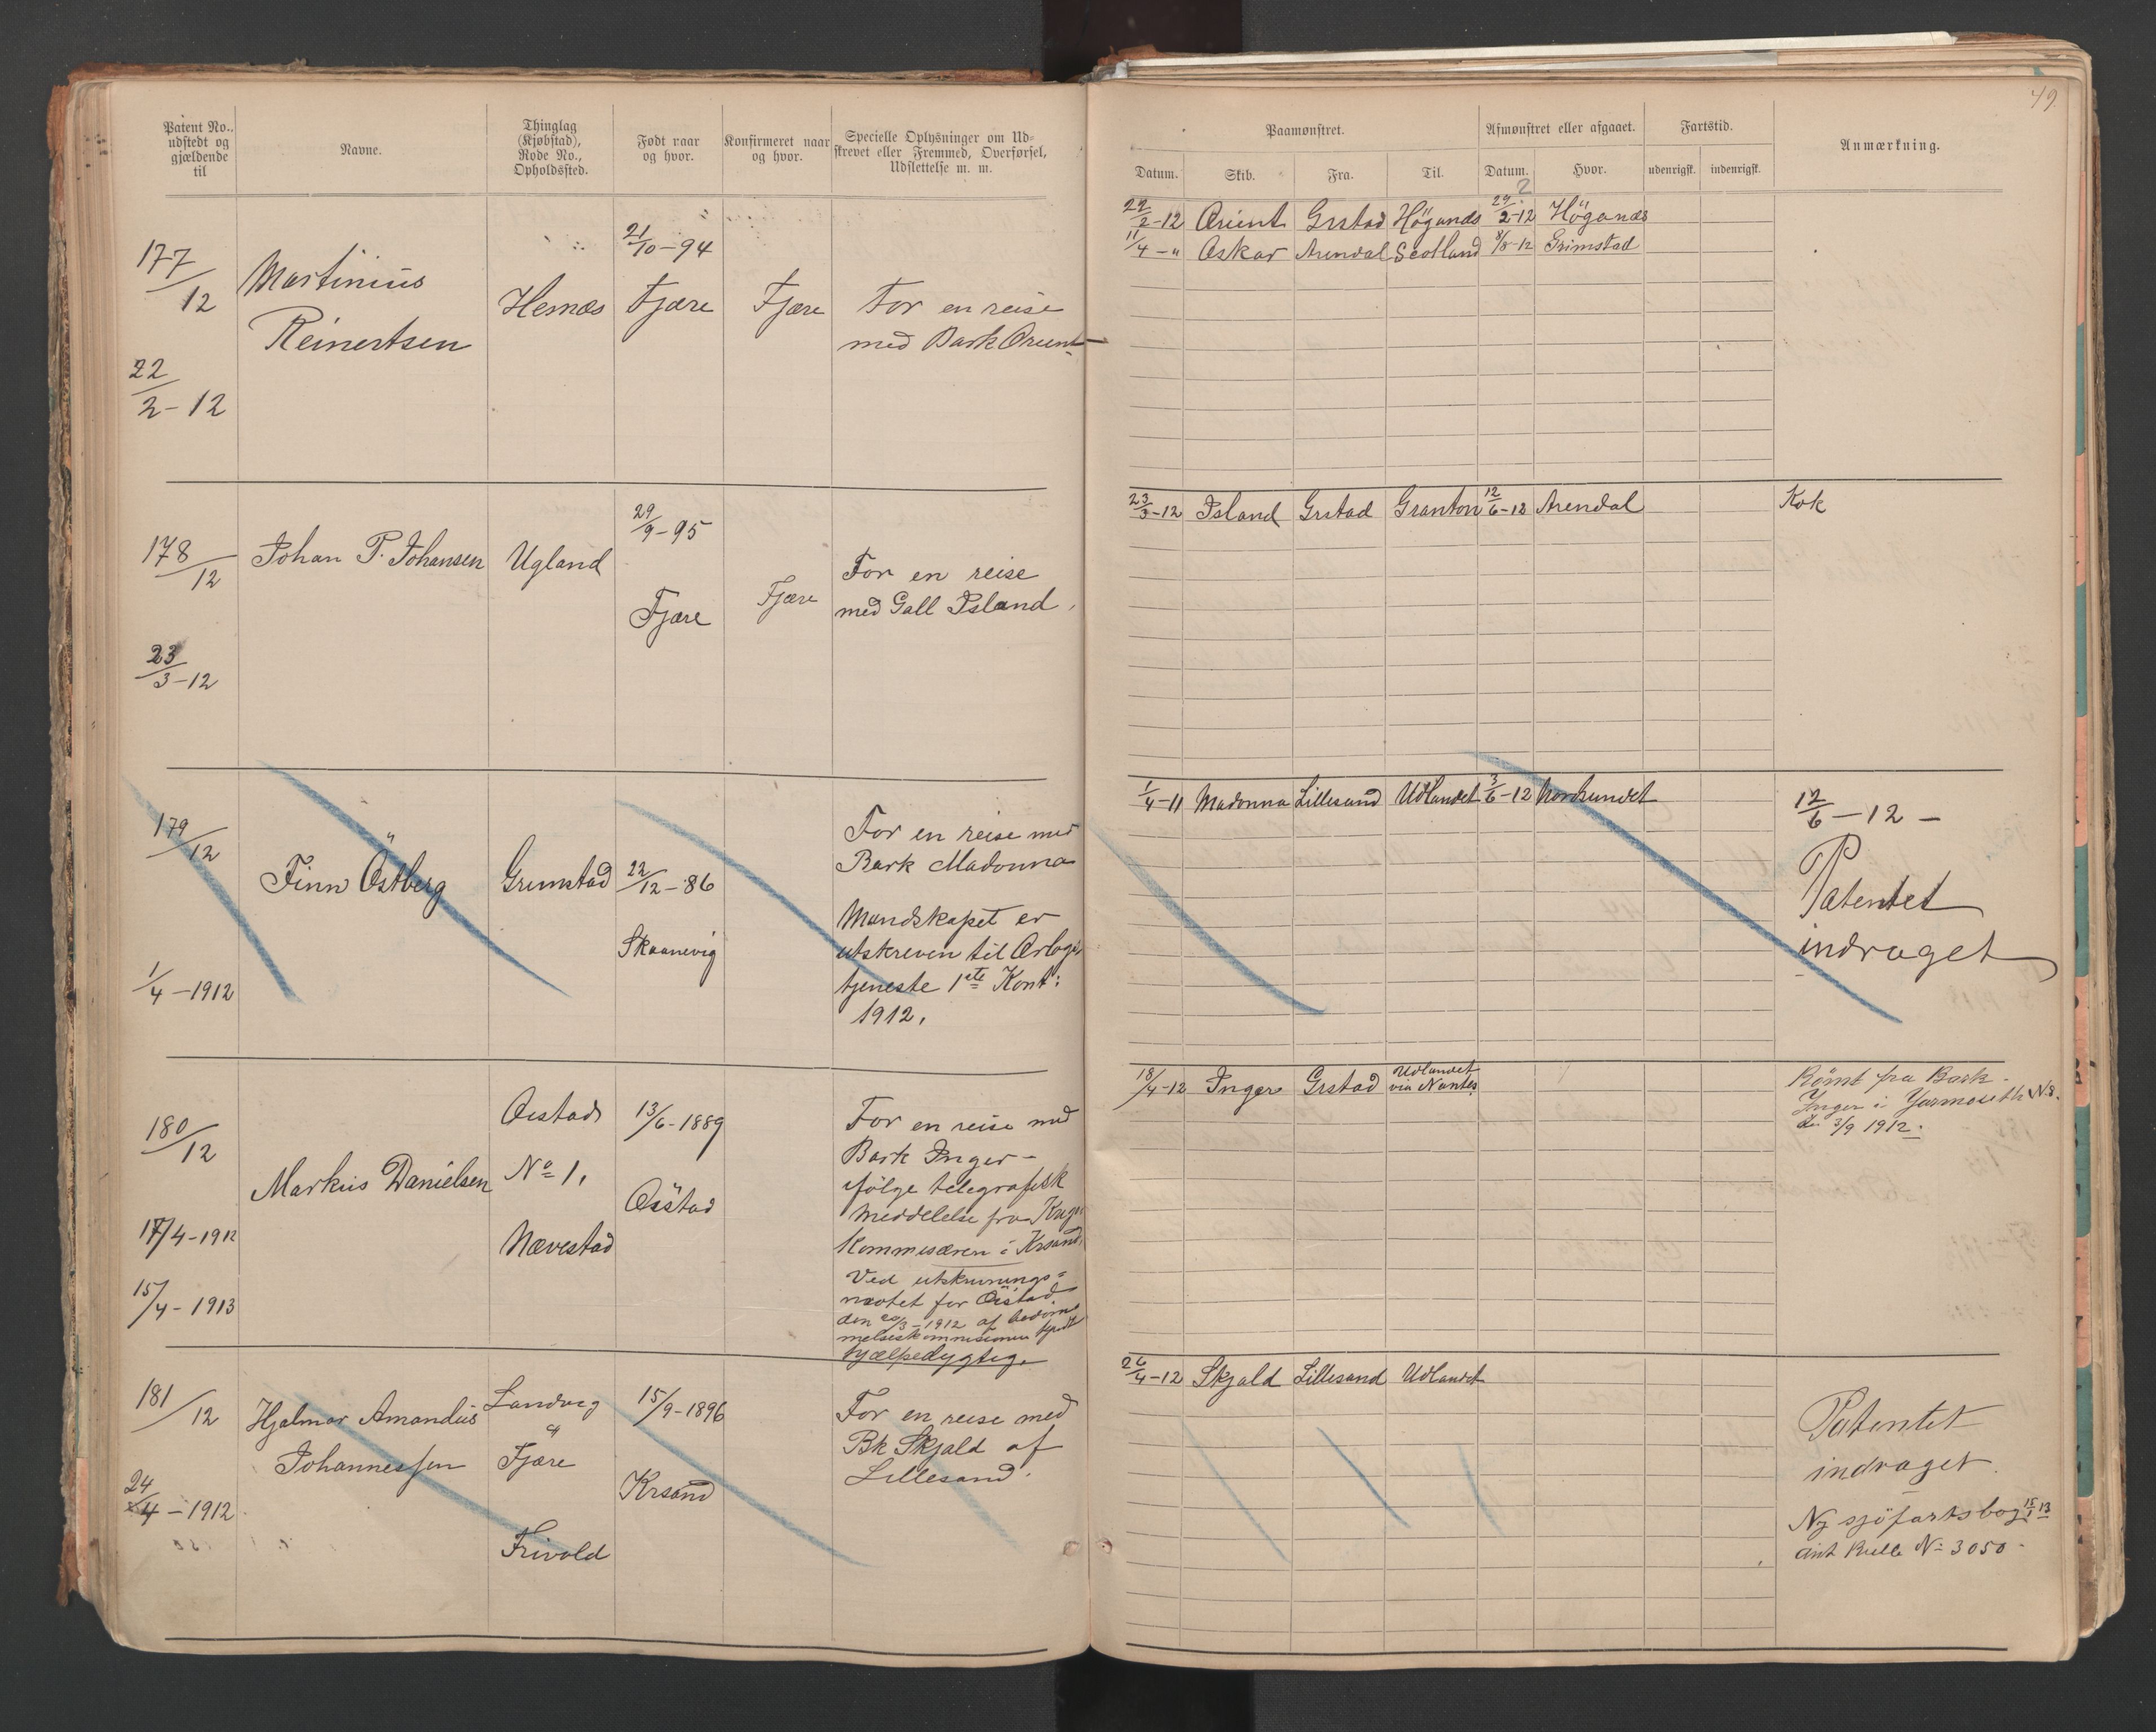 49
Patent No., udstedt og gjældende til
Navne.
Thinglag (Kjøbstad), Rode No., Opholdssted.
Født naar og hvor.
Konfirmeret naar og hvor.
Specielle Oplysninger om Udskrevet eller Fremmed, Overførsel, Udslettelse m. m.
Paamønstret.
Afmønstret eller afgaaet.
Fartstid.
Anmærkning.
Datum. Skib. Fra. Til. Datum. Hvor. udenrigsk. indenrigsk.
177/12
22/2-12
Martinius
Reinertsen
Hemæs
21/10-94
Fjære
Fjære
For en reise
med Bark Orient
22/2-12 Orient Grstad Höganäs 29/2-12 Höganäs
11/4-" Oskar Arendal Scotland 8/8-12 Grimstad
178/12
23/3-12
Johan P. Johansen
Ugland
29/9-95
Fjære
Fjære
For en reise
med Gall Island.
23/3-12 Island Grstad Granton 12/6-12 Arendal
Kok
179/12
1/4-1912
Finn Östberg
Grimstad
22/12-86
Skaanevig
For en reise med
Bark Madonna
Mandskapet er
utskreven til Orlogs
tjeneste 1ste Kont:
1912.
1/4-11 Madonna Lillesand Udlandet 3/6-12 Nordsundet
12/6-12-
Patentet
indraget
180/12
17/4-1912
15/4-1913
Markus Danielsen
Øistad
No 1.
Nævestad
13/6-1889
Öistad
For en reise med
Bark Inger-
ifølge telegrafisk
meddelelse fra Krigs
Kommisæren i Krsand.
Ved utskrivnings=
mötet for Öistad
den 20/3-1912 af bedöm
melseskommisionen kjendt
hjælpedygtig.
18/4-12 Inger Grstad Udlandet
via Nantes.
Römt fra Bark
Inger i Yarmouth N.S.
d. 3/9 1912.
181/12
24/4-1912
Hjalmar Amandus
Johannessen
Landvig
Fjære
Frivold
15/9-1896
Krsand
For en reise med
Bk Skjald af
Lillesand.
26/4-12 Skjald Lillesand Udlandet
Patentet
indraget.
Ny sjöfartsbog 15/1 13
Ant Rulle No 3050-